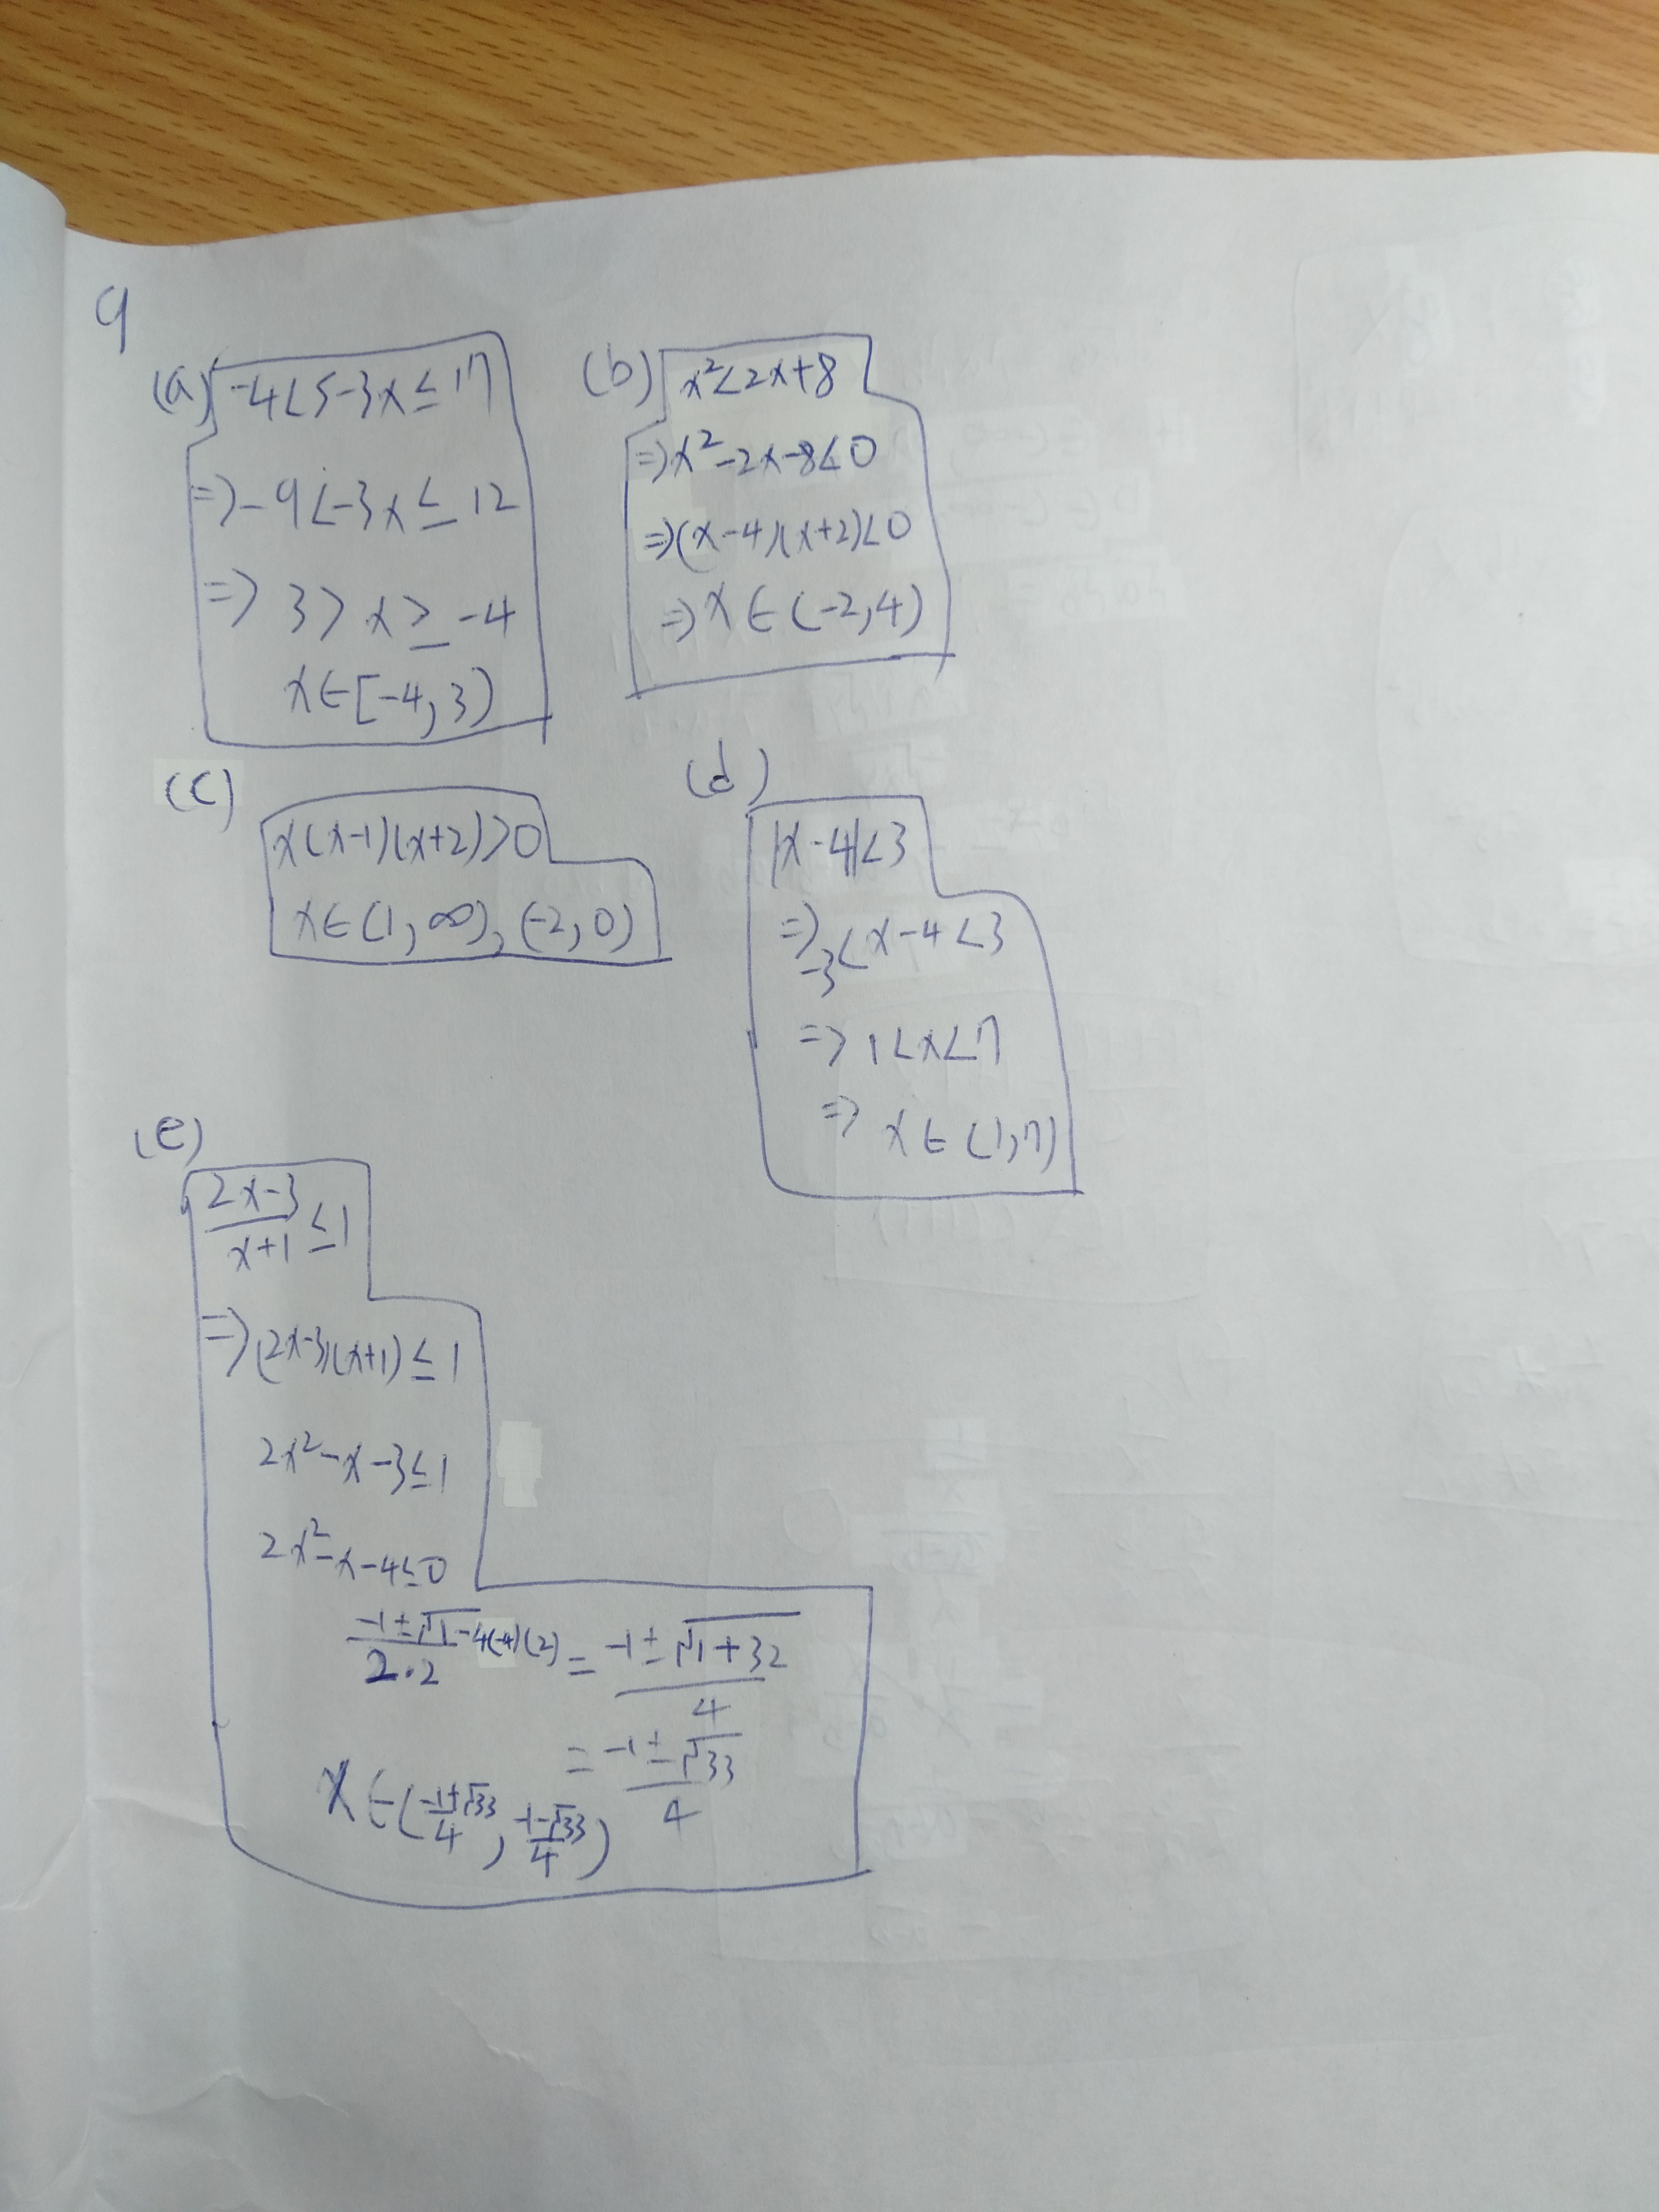 9
(a) -4<5-3x≤17
⇒ -9<-3x≤12
⇒ 3>x≥-4
x∈[-4,3)
(b) x²<2x+8
⇒x²-2x-8<0
⇒(x-4)(x+2)<0
⇒x∈(-2,4)
(c)
x(x-1)(x+2)>0
x∈(1,∞),(-2,0)
(d)
|x-4|<3
⇒ -3<x-4<3
⇒ 1<x<7
⇒ x∈(1,7)
(e)
(2x-3)/(x+1) ≤1
⇒(2x-3)(x+1)≤1
2x²-x-3≤1
2x²-x-4≤0
(-1±√1-4(-4)(2))/(2·2) = (-1±√1+32)/4
= (-1±√33)/4
x∈((-1+√33)/4, (-1-√33)/4)